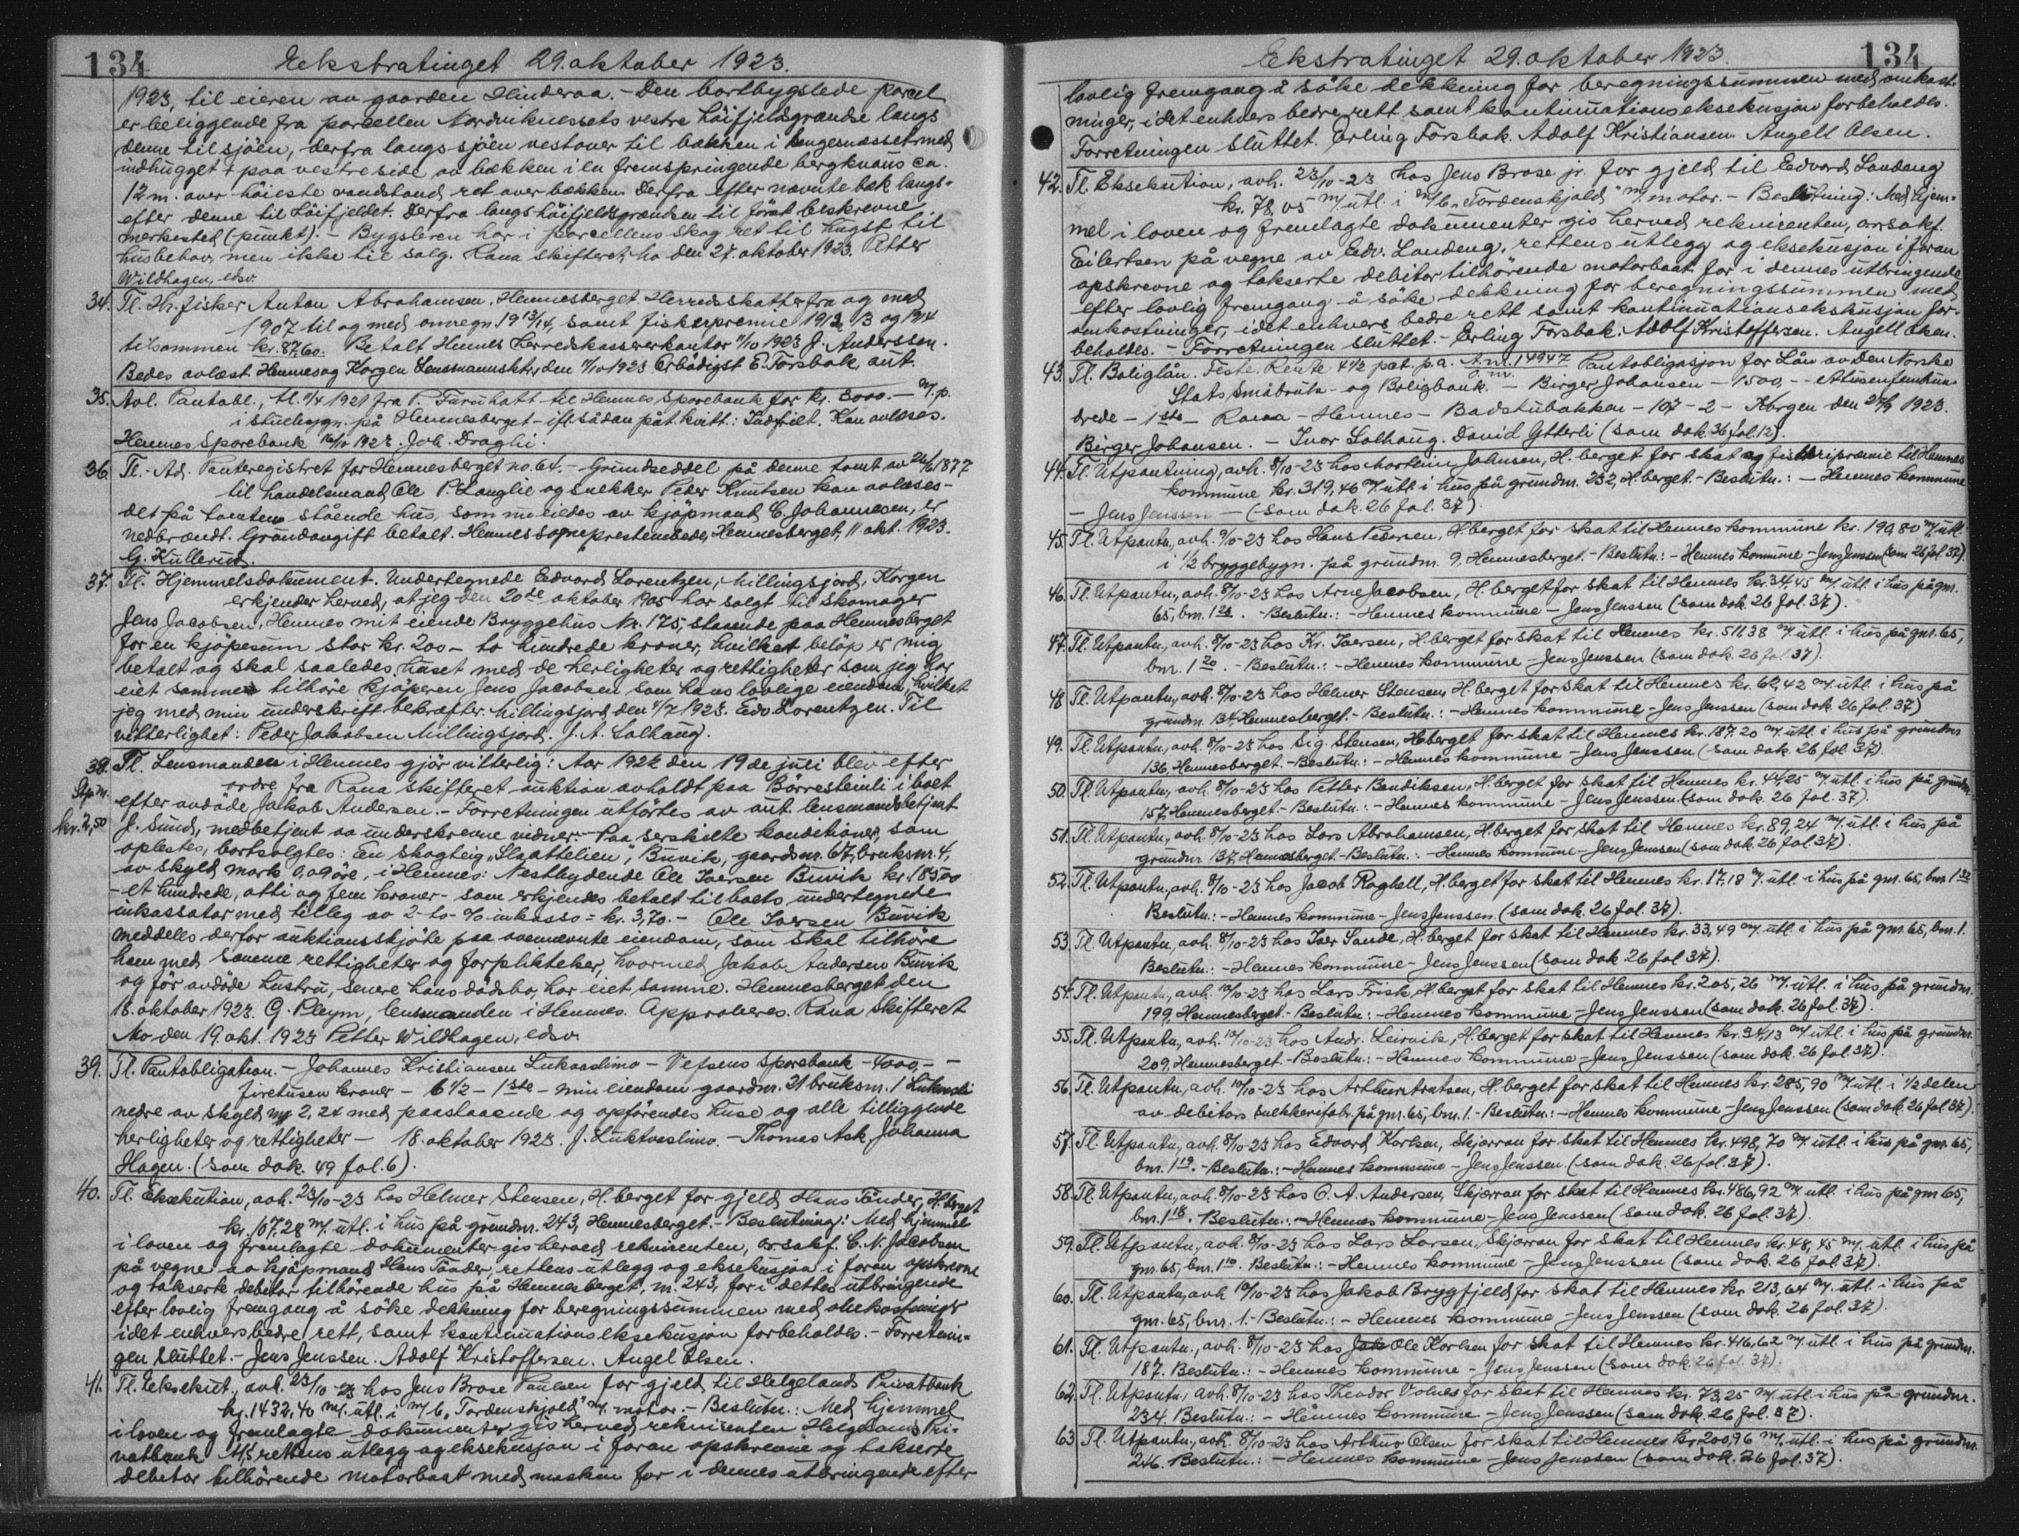 134
Ekstratinget 29. oktober 1923.
1923, til eieren av gaarden Hinderaa. - Den bortbygslede parcel
er beliggende fra parcellen Nordviknessets vestre Höifjeldsgrændse langs
denne til sjöen, derfra langs sjöen vestover til bækken i med
indhugget + paa vestre side av bækken i en fremspringende bergknaus ca.
12 m. over höieste vandstand ret over bækken. Derfra efter nævnte bæk langs-
efter denne til Höifjeldet. Derfra langs höifjeldsgrændsen til först beskrevne
merkested (punkt). - Bygsleren har i parcellens skog ret til hugst til
husbehov, men ikke til salg. Rana skifterett, Mo den 27. oktober 1923. Petter
Wildhagen, edsv.
34. Tl. Hr. fisker Anton Abrahamsen, Hemnesberget. Herredsskatter fra og med
1907 til og med omregn. 1913/14, samt fiskerpremie 1912, 13 og 1914
tilsammen kr. 87,60. Betalt Hemnes herredskassererkontor 11/10 1923 J. Anderssen.
Bedes avlæst Hemnes og Korgen Lensmannsktr., den 11/10 1923 Erbödigst E. Forsbak, aut.
35. Avl. Pantobl., tl. 11/4 1921 fra P. Furuhatt til Hemnes Sparebank for kr. 3000.- m/. p.
i stuebygn. på Hemnesberget - ifl. sådan påt. kvitt.: Indfriet. Kan avlæses.
Hemnes Sparebank 16/10 1923. Joh. Draghi.
36. Tl. - Ad. Panteregistret for Hemnesberget no. 64. - Grundseddel på denne tomt av 26/6 1877
til handelsmand Ole P. Langlie og snekker Peter Knutsen kan avlæses -
det på tomten stående hus, som nu eiedes av kjöpmand C. Johannesen, er
nedbrændt. Grundavgift betalt. Hemnes sogneprestembede, Hemnesberget, 11 okt. 1923.
G. Kullerud.
37. Tl. Hjemmelsdokument. Undertegnede Edvard Lorentzen, Millingsjord, Korgen
erkjender herved, at jeg den 20de oktober 1905 har solgt til skomager
Jens Jacobsen, Hemnes mit eiende Bryggehus No. 175, staaende paa Hemnesberget
for en kjöpesum stor kr. 200 - to hundrede kroner, hvilket belöp er mig
betalt og skal saaledes huset med de herligheter og rettigheter som jeg har
eiet samme tilhöre kjöperen Jens Jacobsen som hans lovlige eiendom, hvilket
jeg med min underskrift bekræfter. Millingsjord den 4/7 1923. Edv. Lorentzen. Til
vitterlighet: Peder Jakobsen Millingsjord. J. A. Solhaug.
38. Tl. Lensmanden i Hemnes gjör vitterlig: Aar 1922 den 19de juli blev efter
Stp. m. kr. 2,50
ordre fra Rana skifteret auktion avholdt paa Börresteinli i boet
efter avdöde Jakob Andersen. - Forretningen utförtes av aut. lensmandsbetjent
J. Sund, medbetjent av underskrevne vidner. - Paa særskilte konditioner, som
oplestes, bortsolgtes: En skogteig "Slaattelien", Buvik, gaardsnr. 67, bruksnr. 4,
av skyld mark 0,09 öre, i Hemnes: Nestbydende Ole Iversen Buvik kr. 185,00
- et hundrede, otti og fem kroner - som erkjendes betalt til boets undertegnede
inkassator med tillæg av 2 - to - % inkasso = kr. 3,70. - Ole Iversen Buvik
meddeles derfor auktionsskjöte paa ovennævnte eiendom, som skal tilhöre
ham med samme rettigheter og forpliktelser, hvormed Jakob Andersen Buvik
og för avdöde hustru, senere hans dödsbo, har eiet samme. Hemnesberget den
18. oktober 1923. G. Pleym, lensmanden i Hemnes. Approberes. Rana skifteret
Mo den 19. okt. 1923 Petter Wildhagen, edsv.
39. Tl. Pantobligation. - Johannes Kristiansen Lukvaslimo - Vefsens sparebank - 4000,- -
firetusen kroner - 6 1/2 - 1ste - min eiendom gaardnr. 21 bruksnr. 1 Luktvasli
nedre av skyld m/. 2,24 med paastaaende og opförendes huse og alle tilliggende
herligheter og rettigheter - 18. oktober 1923. J. Luktvaslimo. - Thomas Ask Johanna
Hagen. (som dok. 49 fol. 6).
40. Tl. Eksekution, avh. 23/10-23 hos Helmer Stensen, H. berget for gjeld Hans Tänder, H. berget
kr. 107,28 m/. utl. i hus på grundnr. 243, Hemnesberget. - Beslutning: Med hjemmel
i loven og fremlagte dokumenter gis herved rekvirenten, o.r.sakf. C. N. Jacobsen
på vegne av kjöpmand Hans Tänder, rettens utlegg og eksekusjon i foran opskrevne
og takserte debitor tilhörende hus på Hemnesberget, nr. 243, for i dettes utbringende
efter lovlig fremgang å söke dekkning for beregningssummen med omkostninger
i det enhvers bedre rett, samt kontinuationseksekusjon forbeholdes. - Forretnin-
gen sluttet. - Jens Jenssen. Adolf Kristoffersen. Angel Olsen.
41. Tl. Eksekut., avh. 23/10-23 hos Jens Brose Paulsen for gjeld til Helgelands Privatbank
kr. 1432,40 m/. utl. i m/b "Tordenskjold" m/. motor. - Beslutn.: Med hjemmel
i loven og fremlagte dokumenter gis herved rekvirenten Helgelands Pri-
vatbank A/S rettens utlegg og eksekusjon i foran opskrevne og takserte
debitor tilhörende motorbaat med maskin for i dennes utbringende efter
134
Ekstratinget 29. oktober 1923.
lovlig fremgang å söke dekkning for beregningssummen med omkost-
ninger, i det enhvers bedre rett samt kontinuationseksekusjon forbeholdes.
Forretningen sluttet. Erling Forsbak. Adolf Kristiansen. Angell Olsen.
42. Tl. Eksekution, avh. 23/10-23 hos Jens Brose jr. for gjeld til Edvard Landeng
kr. 78,05 m/. utl. i m/b "Tordenskjold" m/. motor. - Beslutning: Med hjem-
mel i loven og fremlagte dokumenter gis herved rekvirenten, o.r.sakf.
Eilertsen på vegne av Edv. Landeng, rettens utlegg og eksekusjon i foran
opskrevne og takserte debitor tilhörende motorbaat for i dennes utbringende
efter lovlig fremgang å söke dekkning for beregningssummen med
omkostninger, i det enhvers bedre rett samt kontinuationseksekusjon for-
beholdes. - Forretningen sluttet. - Erling Forsbak. Adolf Kristoffersen. Angell Olsen.
43. Tl. Boliglån. Faste. Rente 4 1/2 pct. p.a. A.m. 14947 Pantobligasjon for Lån av Den Norske
Stats Småbruk- og Boligbank. - Birger Johansen - 1500,- - ettusenfemhun-
drede - 1ste - Rana - Hemnes - Badstubakken - 107 - 2 - Korgen den 27/9 1923.
Birger Johansen. - Ivar Solhaug. David Ytterli (som dok. 36 fol. 12).
44. Tl. Utpantning, avh. 8/10-23 hos Martein Johnsen, H. berget for skat og fiskeripræmie til Hemnes
kommune kr. 319,46 m/. utl. i hus på grundnr. 232, H. berget. - Beslutn.: - Hemnes kommune
- Jens Jenssen - (som dok. 26 fol. 37).
45. Tl. Utpantn., avh. 9/10-23 hos Hans Pedersen, H. berget for skat til Hemnes kommune kr. 190,80 m/. utl.
i 1/2 bryggebygn. på grundnr. 9, Hemnesberget. - Beslutn.: - Hemnes kommune - Jens Jenssen (som 26 fol. 37).
46. Tl. Utpantn., avh. 8/10-23 hos Arne Jacobsen, H. berget for skat til Hemnes kr. 34,45 m/. utl. i hus på gnr.
65, bnr. 1 28. - Beslutn.: - Hemnes kommune - Jens Jenssen (som dok. 26 fol. 37).
47. Tl. Utpantn., avh. 8/10-23 hos Kr. Iversen, H. berget for skat til Hemnes kr. 511,38 m/. utl. i hus på gnr. 65,
bnr. 1 20. - Beslutn.: - Hemnes kommune - Jens Jenssen (som dok. 26 fol. 37).
48 Tl. Utpantn., avh. 8/10-23 hos Helmer Stensen, H. berget for skat til Hemnes kr. 62,42 m/. utl. i hus på
grundnr. 134 Hemnesberget. - Beslutn.: - Hemnes kommune - Jens Jenssen (som dok. 26 fol. 37)
49. Tl. Utpantn., avh. 8/10-23 hos Sig. Stensen, H. berget for skat til Hemnes kr. 187,20 m/. utl. i hus på grundnr.
136, Hemnesberget. - Beslutn.: - Hemnes kommune - Jens Jenssen (som dok. 26 fol. 37).
50. Tl. Utpantn., avh. 8/10-23 hos Petter Bendiksen, H. berget for skat til Hemnes kr. 44,25 m/. utl. i hus på grundn.
157, Hemnesberget - Beslutn.: - Hemnes kommune - Jens Jenssen (som dok. 26 fol. 37).
51. Tl. Utpantn., avh. 8/10-23 hos Lars Abrahamsen, H. berget for skat til Hemnes kr. 89,24 m/. utl. i hus på
grundnr. 137, Hemnesberget - Beslutn.: - Hemnes kommune - Jens Jenssen (som dok. 26 fol. 37).
52. Tl. Utpantn., avh. 8/10-23 hos Jacob Roghell, H. berget for skat til Hemnes kr. 17,18 m/. utl. i hus på gnr. 65, bnr. 1 32
Beslutn.: - Hemnes kommune - Jens Jenssen (som dok. 26 fol. 37).
53. Tl. Utpantn., avh. 8/10-23 hos Iver Sande, H. berget for skat til Hemnes kr. 33,49 m/. utl. i hus på gnr. 65, bnr. 1.
Beslutn.: - Hemnes kommune - Jens Jenssen (som dok. 26 fol. 37).
54. Tl. Utpantn., avh. 10/10-23 hos Lars Frisk, H. berget for skat til Hemnes kr. 205,26 m/. utl. i hus på grundn.
199, Hemnesberget. - Beslutn.: - Hemnes kommune - Jens Jenssen (som dok. 26 fol. 37).
55. Tl. Utpantn., avh. 10/10-23 hos Andr. Leirvik, H. berget for skat til Hemnes kr. 34,13 m/. utl. i hus på grundnr.
209, Hemnesberget. - Beslutn.: - Hemnes kommune - Jens Jenssen (som dok. 26 fol. 37).
56. Tl. Utpantn., avh. 10/10-23 hos Arthur Arntsen, H. berget for skat til Hemnes kr. 285,90 m/. utl. i 1/2 delen
av debitors snekkerifabr. på gnr. 65, bnr. 1. - Beslutn.: - Hemnes kommune - Jens Jenssen (som dok. 26 fol. 37).
57. Tl. Utpantn., avh. 8/10-23 hos Edvard Karlsen, Skjarran for skat til Hemnes kr. 498,70 m/. utl. i hus på gnr. 65,
bnr. 1 19. - Beslutn.: - Hemnes kommune - Jens Jenssen (som dok. 26 fol. 37).
58. Tl. Utpantn., avh. 8/10-23 hos O. A. Andersen, Skjarran for skat til Hemnes kr. 486,92 m/. utl. i hus på gnr. 65,
bnr. 1 18. Beslutn.: - Hemnes kommune - Jens Jenssen (som dok. 26 fol. 37).
59. Tl. Utpantn., avh. 8/10-23 hos Lars Larsen, Skjarran for skat til Hemnes kr. 48,45 m/. utl. i hus på
gnr. 65, bnr. 1 10. Beslutn.: - Hemnes kommune - Jens Jenssen (som dok. 26 fol. 37).
60. Tl. Utpantn., avh. 10/10-23 hos Jakob Brygfjeld for skat til Hemnes kr. 213,64 m/. utl. i hus på
gnr. 65, bnr. 1. - Beslutn.: - Hemnes kommune - Jens Jenssen (som dok. 26 fol. 37).
61. Tl. Utpantn., avh. 8/10-23 hos Jak Ole Karlsen for skat til Hemnes kr. 416,62 m/. utl. i hus på grundn.
187. Beslutn.: - Hemnes kommune - Jens Jenssen (som dok. 26 fol. 37).
62. Tl. Utpantn., avh. 8/10-23 hos Theodor Volnes for skat til Hemnes kr. 73,25 m/. utl. i hus på grundnr.
234. Beslutn.: - Hemnes kommune - Jens Jenssen (som dok. 26 fol. 37).
63 Tl. Utpantn., avh. 8/10-23 hos Arthur Olsen for skat til Hemnes kr. 200,96 m/. utl. i hus på grundnr.
246. Beslutn.: - Hemnes kommune - Jens Jenssen (som dok. 26 fol. 37).